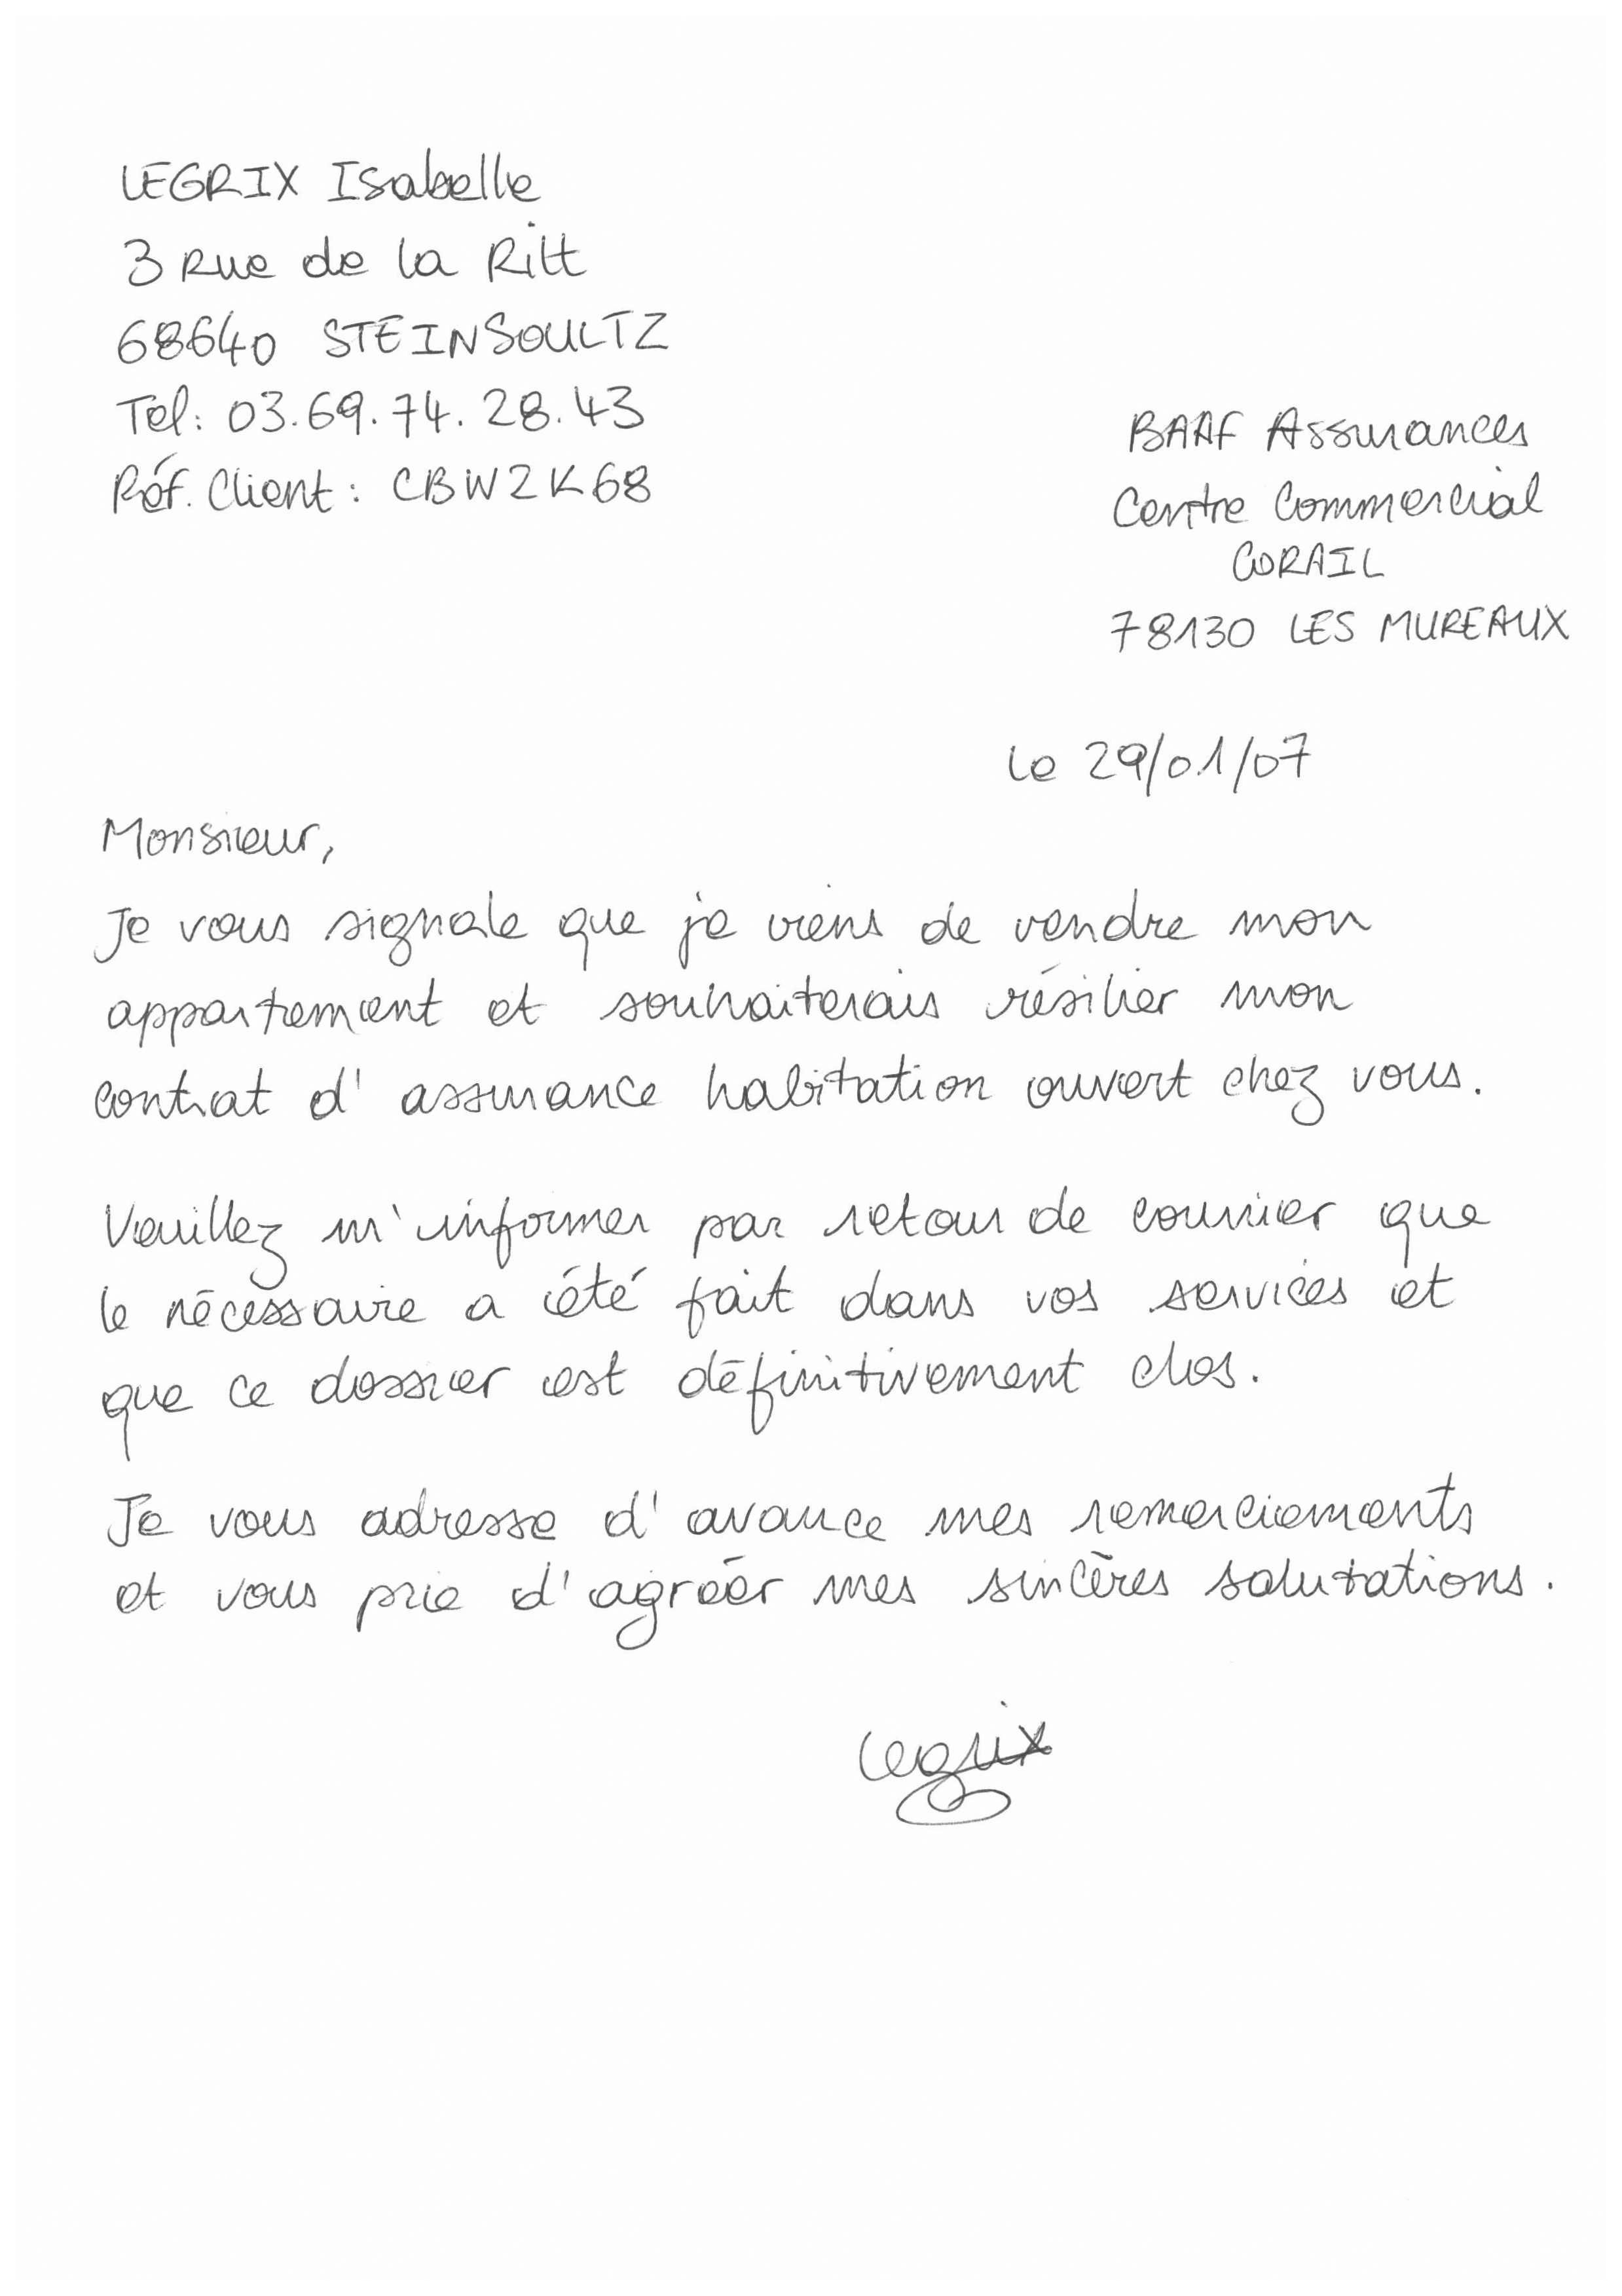 LEGRIX Isabelle
3 Rue de la Ritt
68640 STEINSOULTZ
Tel: 03.69.74.28.43
Réf. Client : CBW2K68
BAAF Assurances
Centre Commercial
CORAIL
78130 LES MUREAUX
le 29/01/07
Monsieur,
Je vous signale que je viens de vendre mon
appartement et souhaiterais résilier mon
contrat d'assurance habitation ouvert chez vous.
Veuillez m'informer par retour de courrier que
le nécessaire a été fait dans vos services et
que ce dossier est définitivement clos.
Je vous adresse d'avance mes remerciements
et vous prie d'agréer mes sincères salutations.
Legrix